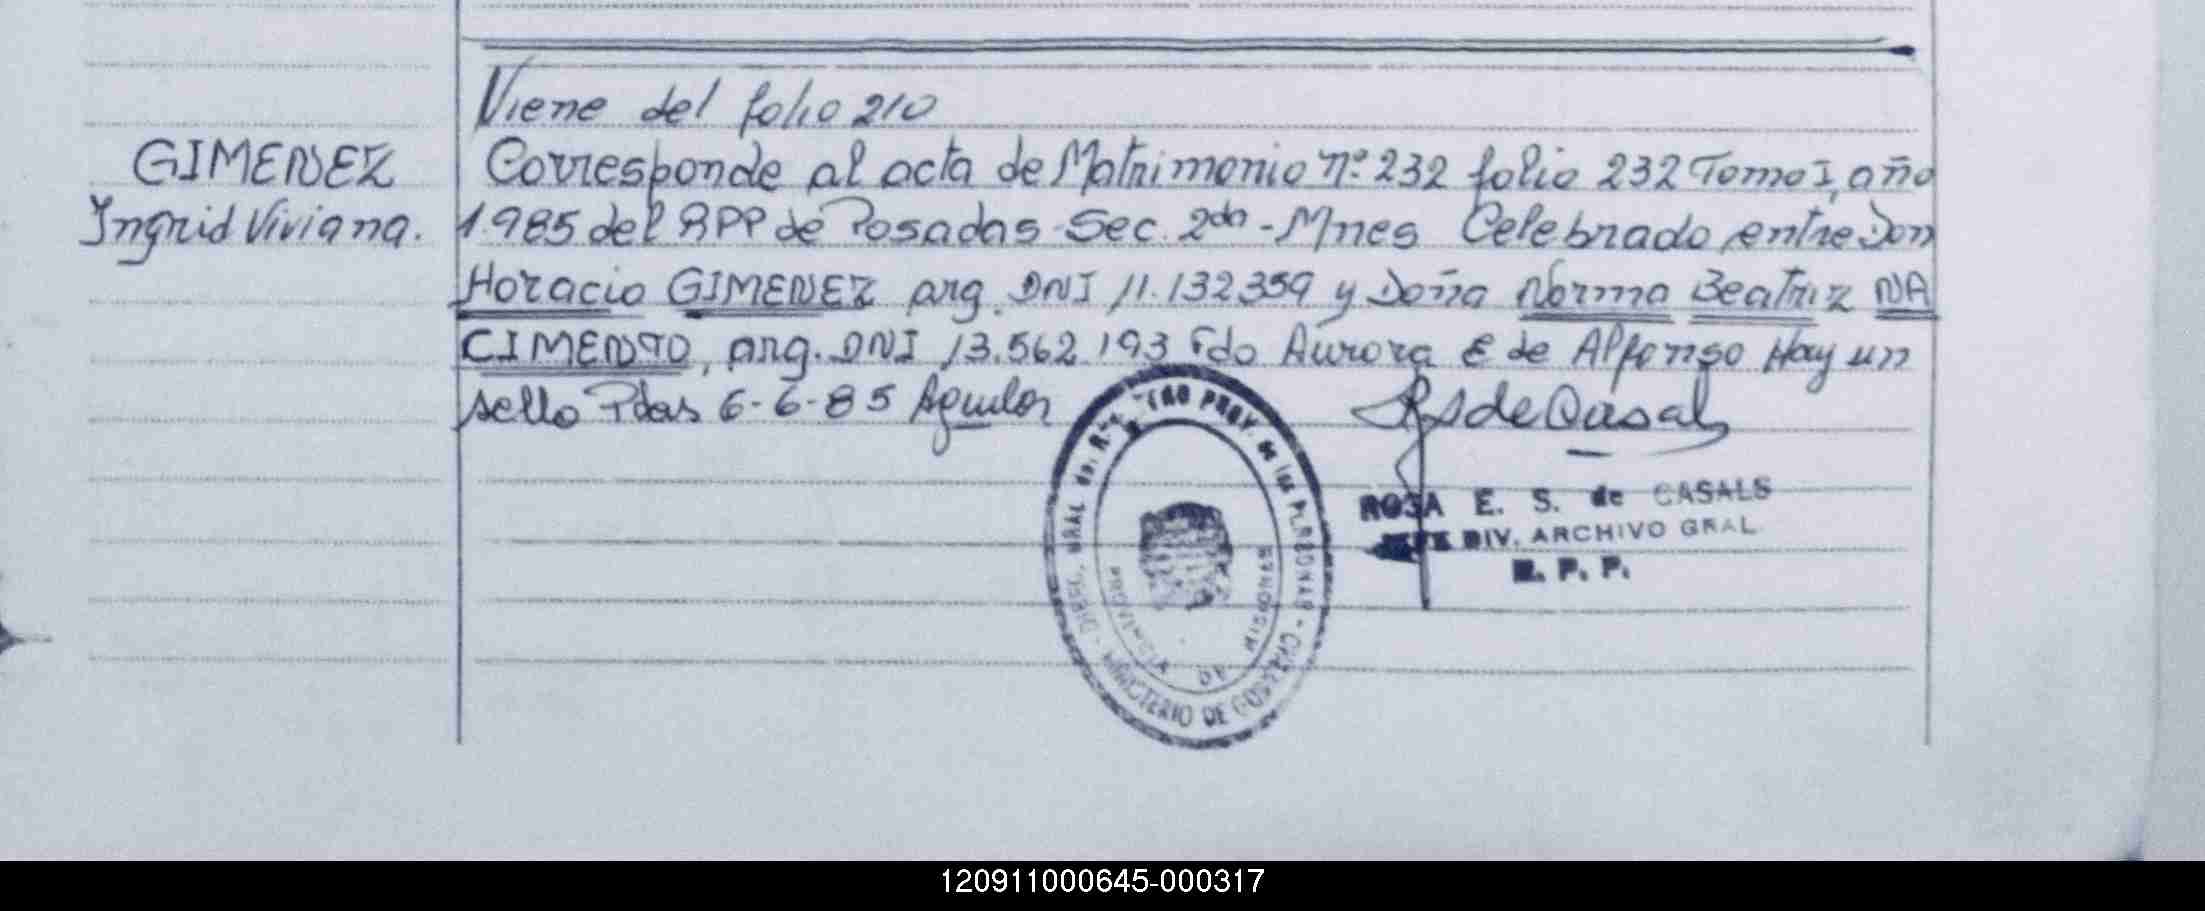 Viene del folio 210
GIMENEZ
Ingrid Viviana.
Corresponde al acta de Matrimonio nº 232 folio 232 Tomo I, año
1.985 del RPP de Posadas Sec. 2da - Mnes Celebrado entre Don
Horacio GIMENEZ arg. DNI 11.132359 y Doña Norma Beatriz NA
CIMENTO, arg. DNI 13.562.193 Fdo Aurora E de Alfonso Hay un
sello Pdas 6-6-85 Aguilar
RS de Casals
ROSA E. S. de CASALS
JEFE DIV. ARCHIVO GRAL.
R. P. P.
DIREC. GRAL. del REGISTRO PROV. de las PERSONAS
MINISTERIO DE GOBIERNO
PROVINCIA DE MISIONES
120911000645-000317